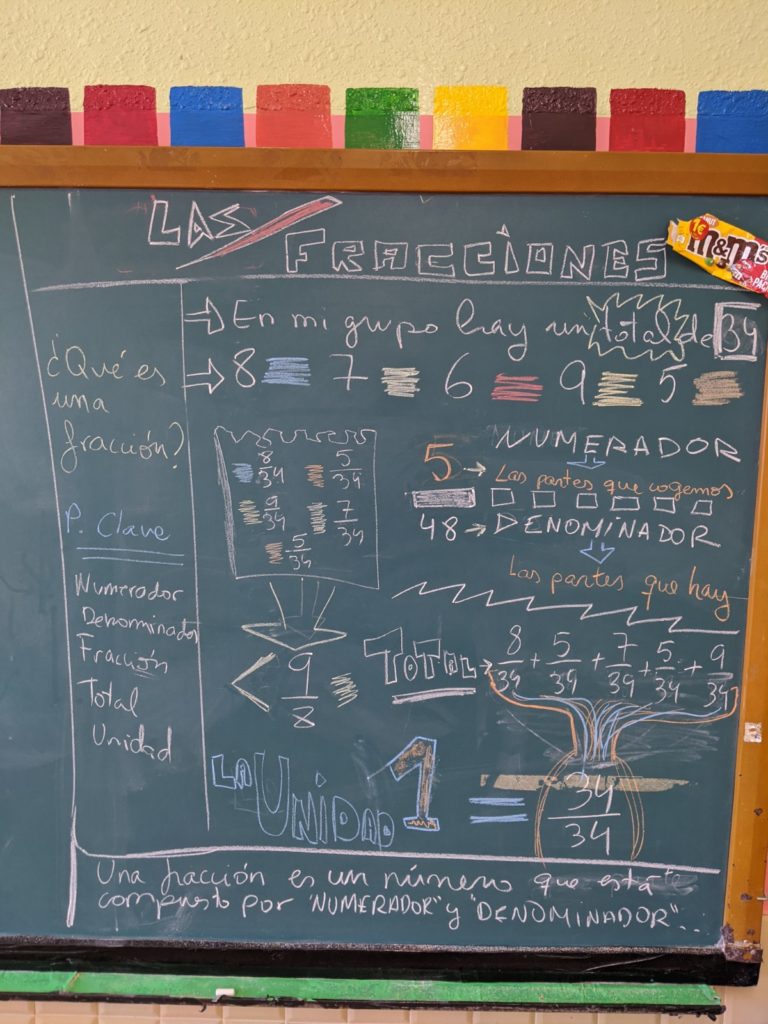 LAS
FRACCIONES
1€
m&m's
En mi grupo hay un total de 34
8 7 6 9 5
¿Qué es
una
fracción?
P. Clave
Numerador
Denominador
Fracción
Total
Unidad
8/34 5/34
9/34 7/34
5/34
5 NUMERADOR
Las partes que cogemos
48 DENOMINADOR
Las partes que hay
< 9/8
TOTAL 8/34 + 5/34 + 7/34 + 5/34 + 9/34
LA UNIDAD 1 = 34/34
Una fracción es un número que está
compusto por "NUMERADOR" y "DENOMINADOR"...